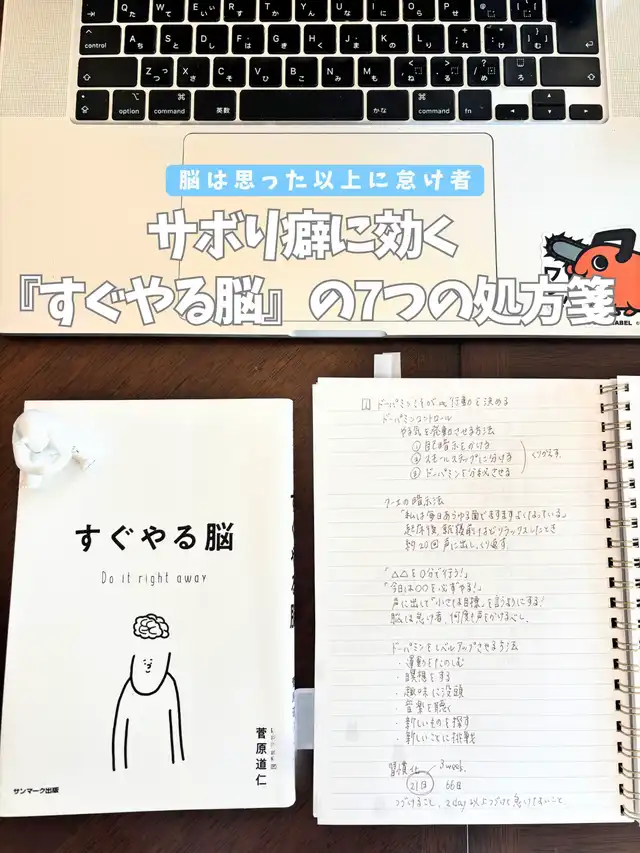 tab Q た W て E い R す T か Y ん U な I に O ら P せ
control A ち S と D し F は G き H く J ま K の L り
Z つ X さ C そ V ひ B こ N み M も
option command 英数 かな command fn
脳は思った以上に怠け者
サボり癖に効く
『すぐやる脳』の7つの処方箋
すぐやる脳
Do it right away
菅原道仁
サンマーク出版
1 ドーパミンこそが行動を決める
ドーパミンコントロール
やる気を発動させる方法
① 自己暗示をかける
② スモールステップに分ける
③ ドーパミンを分泌させる
くりかえす。
クーエの暗示法
「私は毎日あらゆる面でますますよくなっている」
起床後、就寝前などリラックスしたとき
約20回 声に出し、くり返す。
「△△を○分で行う!」
「今日は○○を必ずやる!」
声に出して"小さな目標"を言うようにする!
脳は怠け者、何度も声をかける心し。
ドーパミンをレベルアップさせる方法
・運動をたのしむ
・瞑想をする
・趣味に没頭
・音楽を聴く
・新しいものを探す
・新しいことに挑戦
習慣化 3week.
21日 66日
つづけること、2day以上つづけて怠けないこと